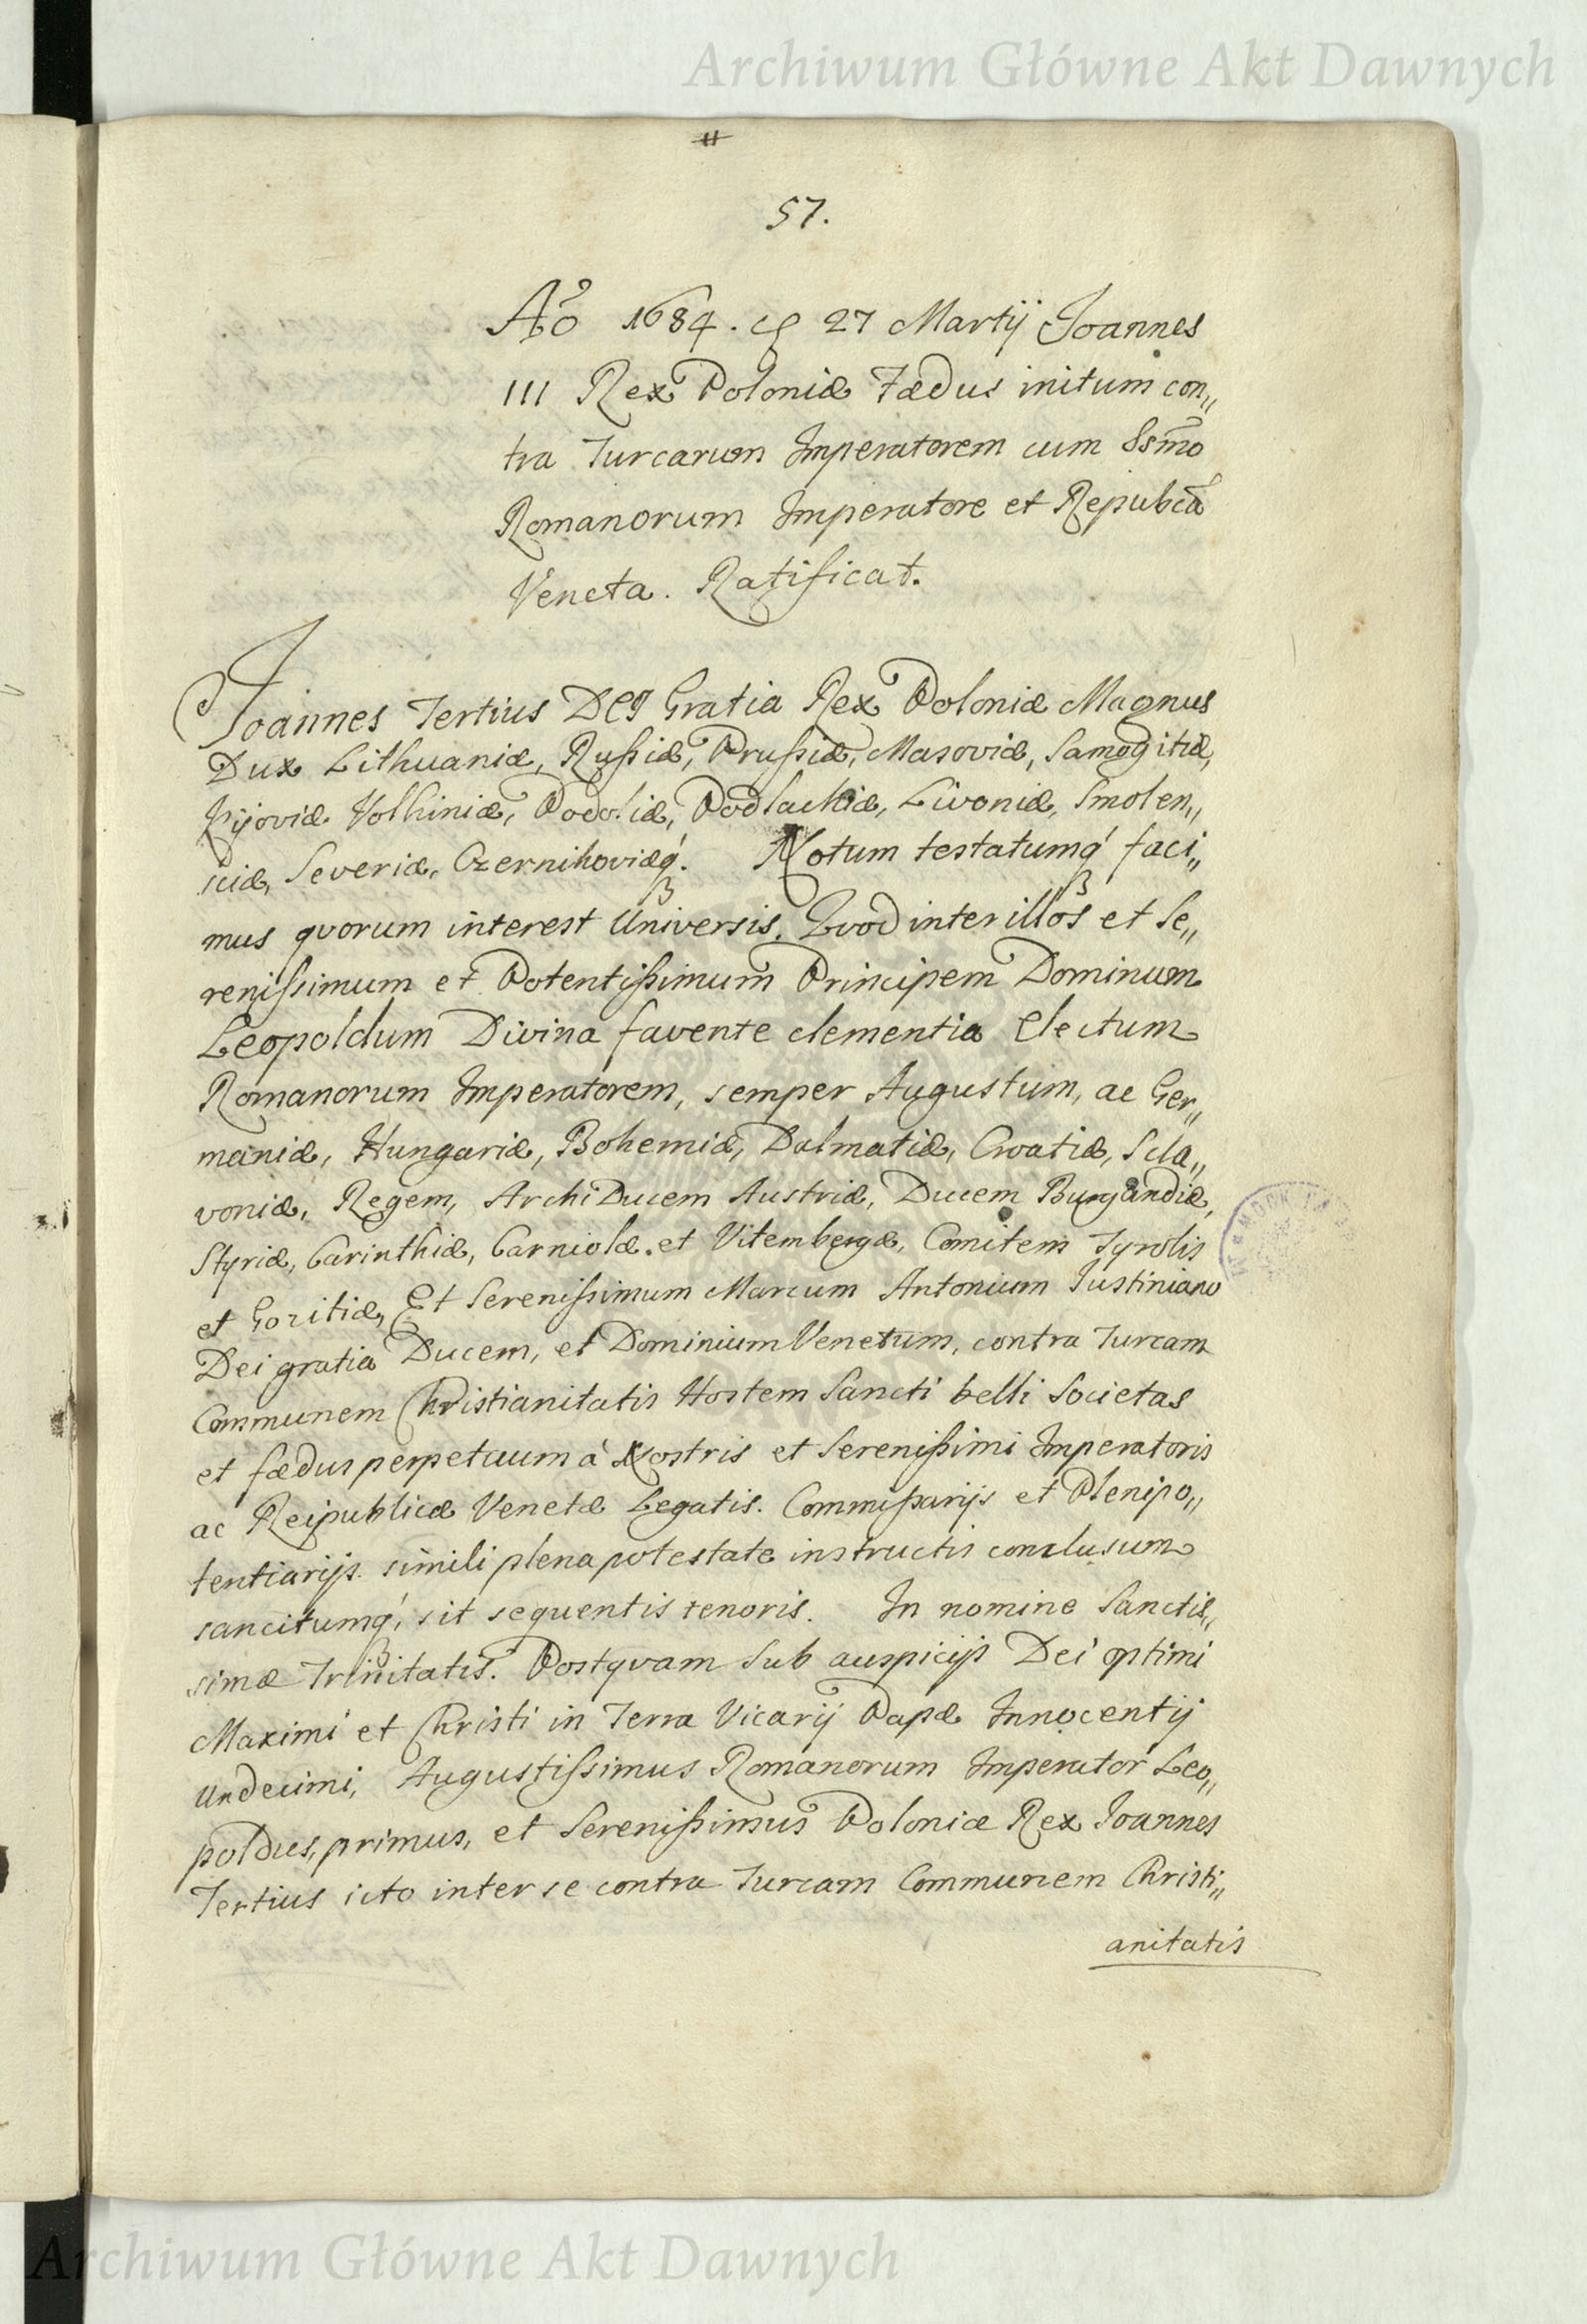 Archiwum Główne Akt Dawnych
57.
Aō 1684. 27 Martij Joannes
III Rex Poloniæ Fædus initum con„
tra Turcarum Imperatorem cum Ssm̄o
Romanorum Imperatore et Repubcā
Veneta. Ratificat.
Joannes Tertius DEI Gratia Rex Poloniæ Magnus
Dux Lithuaniæ, Rußiæ, Prußiæ, Masoviæ, Samogitiæ,
Kijoviæ Volhiniæ, Podoliæ, Podlachiæ, Livoniæ, Smolen„
sciæ, Severiæ, Czernihoviæq́. Notum testatumq́ faci„
mus qvorum interest Universis. Qvod inter illos et Se„
renißimum et Potentißimum Principem Dominum
Leopoldum Divina favente clementia Electum
Romanorum Imperatorem, semper Augustum, ac Ger„
maniæ, Hungariæ, Bohemiæ, Dalmatiæ, Croatiæ, Scla„
voniæ, Regem, ArchiDucem Austriæ, Ducem Burgandiæ,
Styriæ, Carinthiæ, Carniolæ. et Vitembergæ, Comitem Tyrolis
et Goritiæ, Et Serenißimum Marcum Antonium Justiniano
Dei gratia Ducem, et Dominium Venetum, contra Turcam
Communem Christianitatis Hostem Sancti belli Societas
et fædus perpetuum à Nostris et Serenißimi Imperatoris
ac Reipublicæ Venetæ Legatis. Commißarijs et Plenipo„
tentiarijs. simili plena potestate instructis conclusum
sancitumq́, sit sequentis tenoris. In nomine Sanctis„
simæ Trinitatis. Postqvam Sub auspicijs Dei optimi
Maximi et Christi in Terra Vicarij Papæ Innocentij
Undecimi, Augustißimus Romanorum Imperator Leo„
poldus, primus, et Serenißimus Poloniæ Rex Joannes
Tertius icto inter se contra Turcam Communem Christi„
anitatis
Archiwum Główne Akt Dawnych